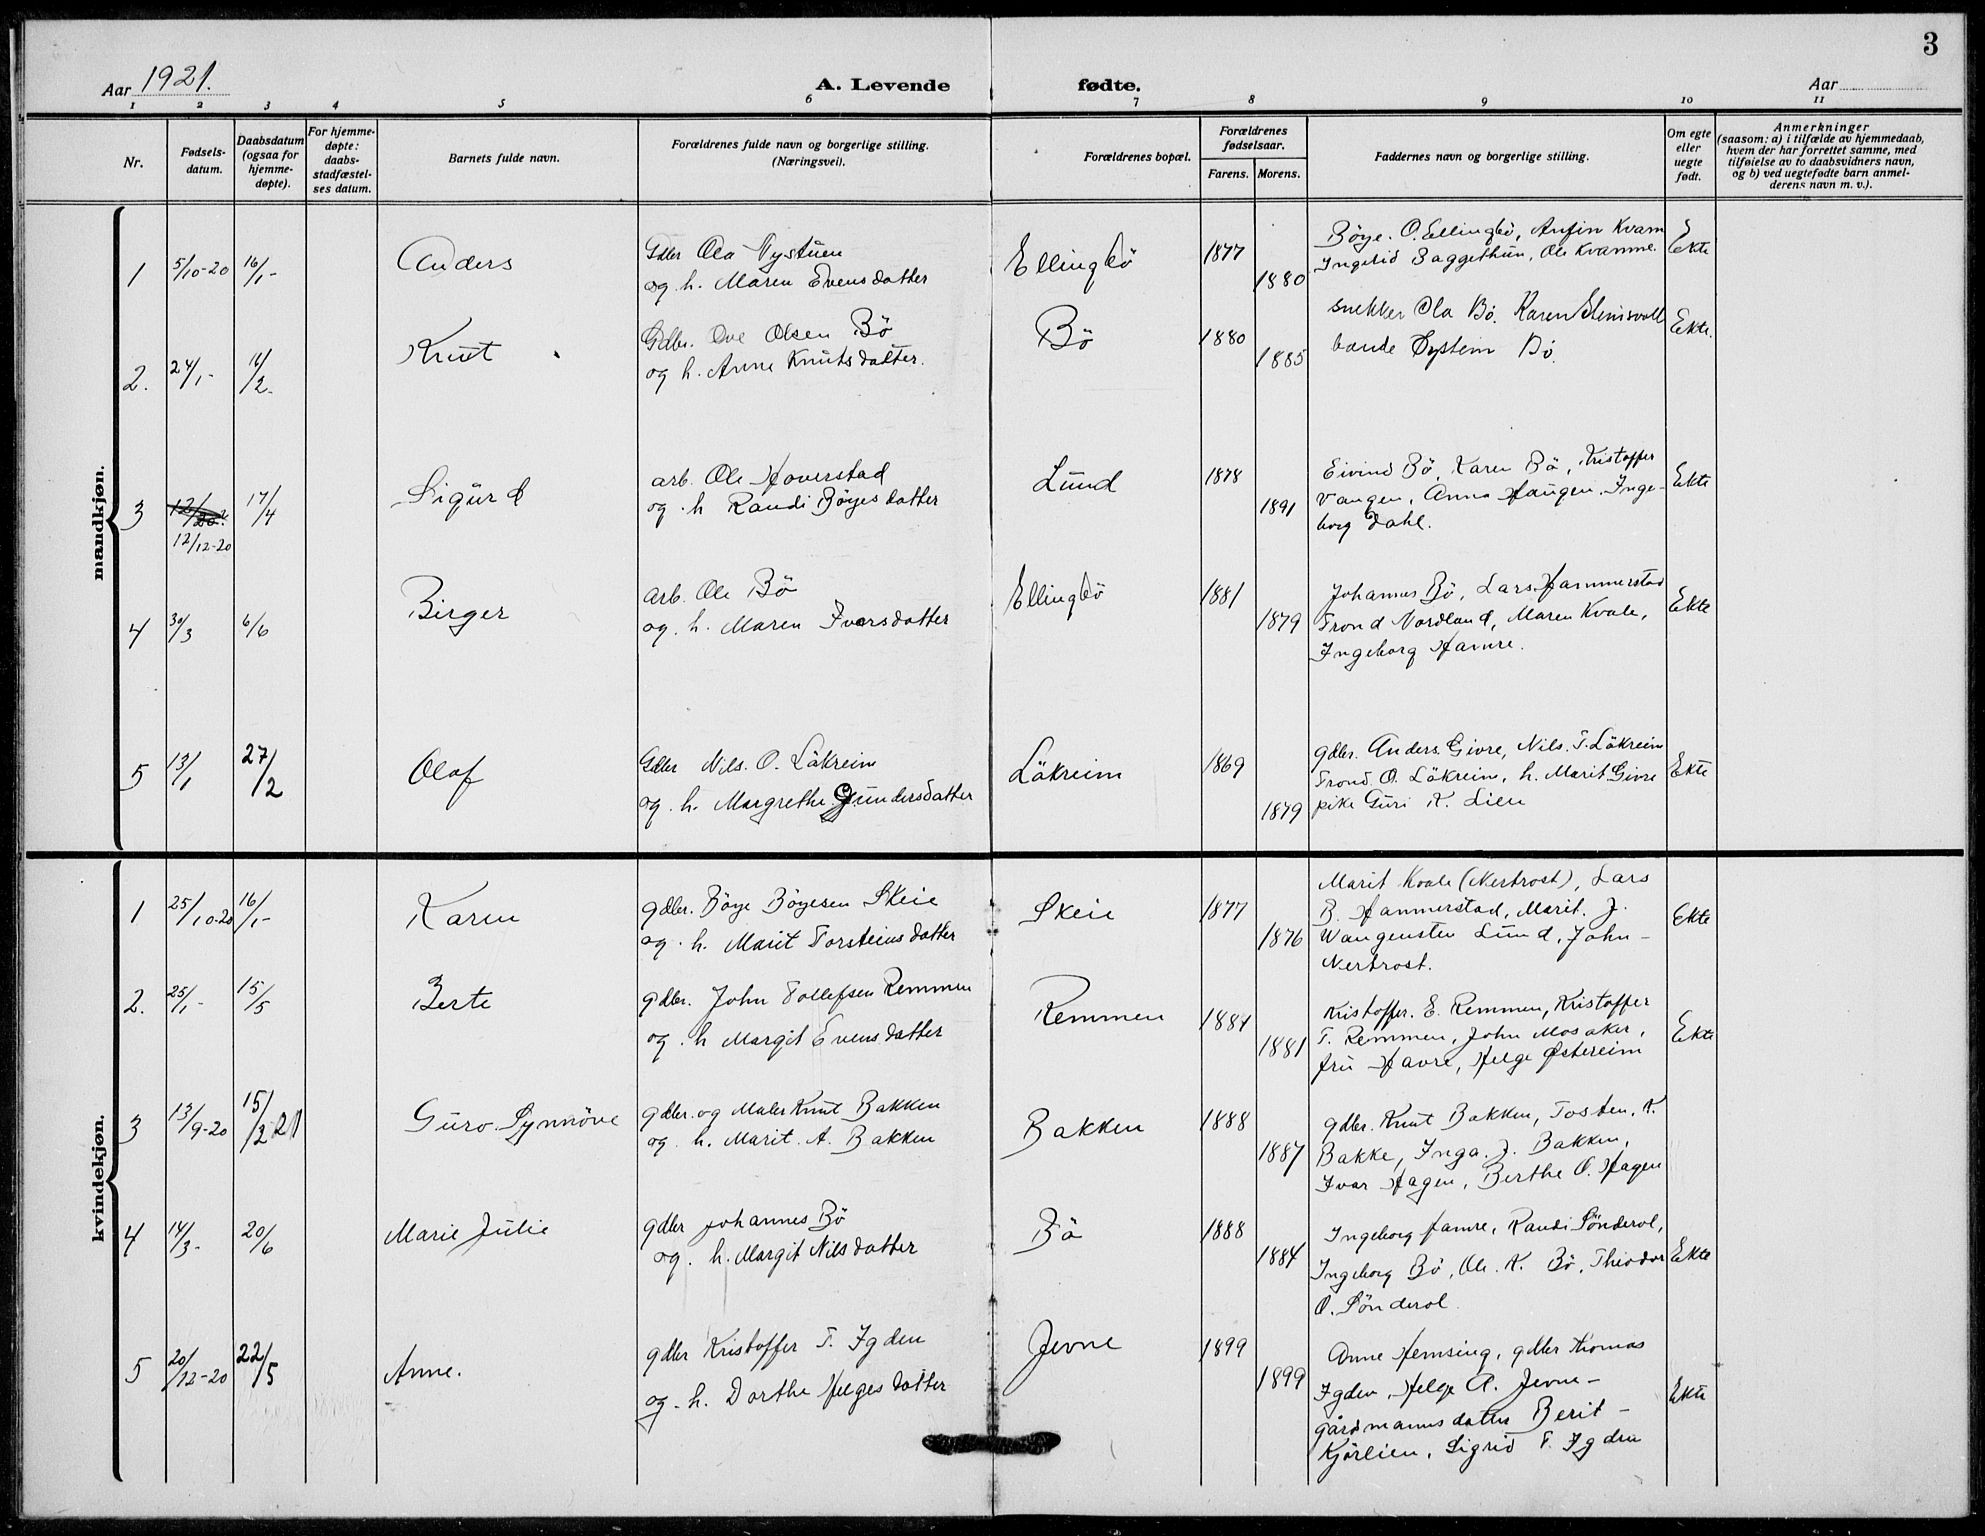 3
Aar 1921.
A. Levende fødte.
Aar
1 2 3 4 5 6 7 8 9 10 11
Nr.
Fødsels-
datum.
Daabsdatum
(ogsaa for
hjemme-
døpte).
For hjemme-
døpte:
daabs-
stadfæstel-
ses datum.
Barnets fulde navn.
Forældrenes fulde navn og borgerlige stilling.
(Næringsvei).
Forældrenes bopæl.
Forældrenes
fødselsaar.
Farens. Morens.
Faddernes navn og borgerlige stilling.
Om egte
eller
uegte
født.
Anmerkninger
(saasom: a) i tilfælde av hjemmedaab,
hvem der har forrettet samme, med
tilføielse av to daabsvidners navn,
og b) ved uegtefødte barn anmel-
derens navn m. v.).
mandkjøn.
1 5/10-20 16/1- Anders
Gdbr Ola Nystuen
og h. Maren Evensdatter
Ellingbö 1877 1880
Böye. O. Ellingbö, Anfin Kvam
Ingerid Baggethun, Ole Kvamme.
Ekte
2. 24/1- 11/2- Knut
Gdbr. Ove Olsen Bö
og h. Anne Knutsdatter.
Bö 1880 1885
snekker Ola Bö. Karen
Öystein Bö.
Ekte.
3 12/12-20 17/4 Sigurd
arb. Ole Hoverstad
og h Randi Böyesdatter
Lund 1878 1891
Eivind Bö, Karen Bö, Kristoffer
Vangen, Anna Haugen, Inge-
borg Dahl.
Ekte
4 30/3 6/6 Birger
arb. Ole Bö
og. h. Maren Iversdatter
Ellingbö 1881 1879
Johannes Bö, Lars Hammerstad
Trond Nordland, Maren Kvale,
Ingeborg Hamre.
Ekte
5 13/1 27/2 Olaf
Gdbr Nils. O. Lökreim
og. h. Margrethe Gundersdatter
Lökreim 1869 1879
gdbr. Anders Givre, Nils. T. Lökreim
Trond O. Lökreim, h. Marit Givre
pike Guri K. Lien
Ekte
kvindekjøn.
1 25/10-20 16/1- Karen
gdbr. Böye Böyesen Skeie
og. h. Marit Torsteinsdatter
Skeie 1877 1876
Marit Kvale (Nertrost), Lars
B. Hammerstad, Marit. J.
Wangensten Lund, John
Nertrost.
Ekte
2. 25/1- 15/5 Berte
gdbr. John Tollefsen Remmen
og. h Margit Evensdatter
Remmen 1881
Kristoffer. E. Remmen, Kristoffer
T. Remmen, John Mosaker,
fru Havre, Helge Østereim
Ekte
3 13/9-20 15/2 21 Guro Synnöve
gdbr. og Maler Knut Bakken
og. h. Marit. A. Bakken
Bakken 1888 1887
gdbr. Knut Bakken, Tosten. K.
Bakke, Inga. J. Bakken,
Ivar Hagen, Berthe O. Hagen
4 14/3- 20/6 Marie Julie
gdbr Johannes Bö
og. h. Margit Nilsdatter
Bö 1888 1884
Ingeborg Hamre, Randi Sönderol,
Ingeborg Bö, Ole. K. Bö, Theodor
O. Sönderol
Ekte
5 20/12-20 22/5 Anne.
gdbr Kristoffer T. Igden
og. h. Dorthe Helgesdatter
Jevne 1899 1899
Anne Hemsing, gdbr Thomas
Igden, Helge A. Jevne-
gårdmannsdatter Berit-
Kjörlien, Sigrid T. Igden
Ekte